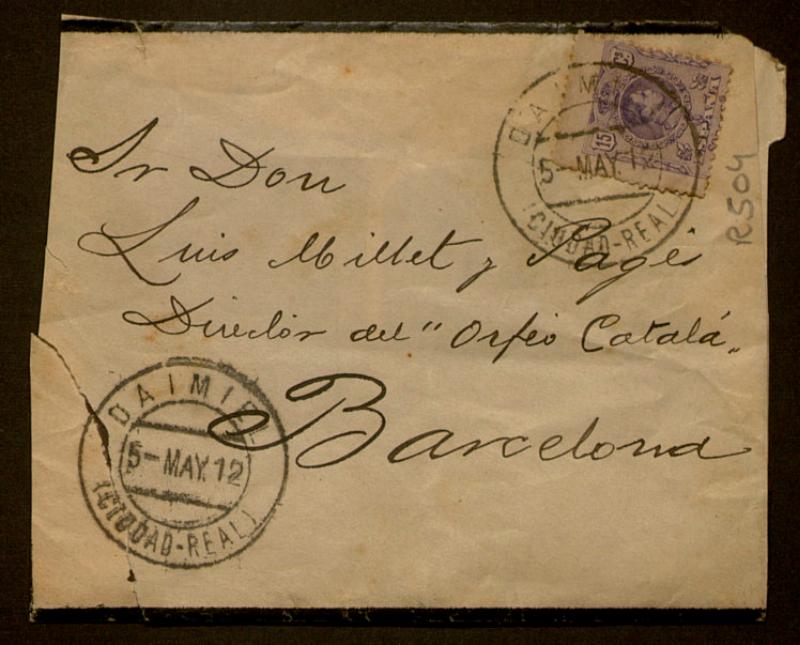 DAIMIEL
5-MAY.12
(CIUDAD-REAL)
15
R504
Sr Don
Luis Millet y Pagés
Director del "Orfeó Catalá"
Barcelona
DAIMIEL
5-MAY.12
(CIUDAD-REAL)